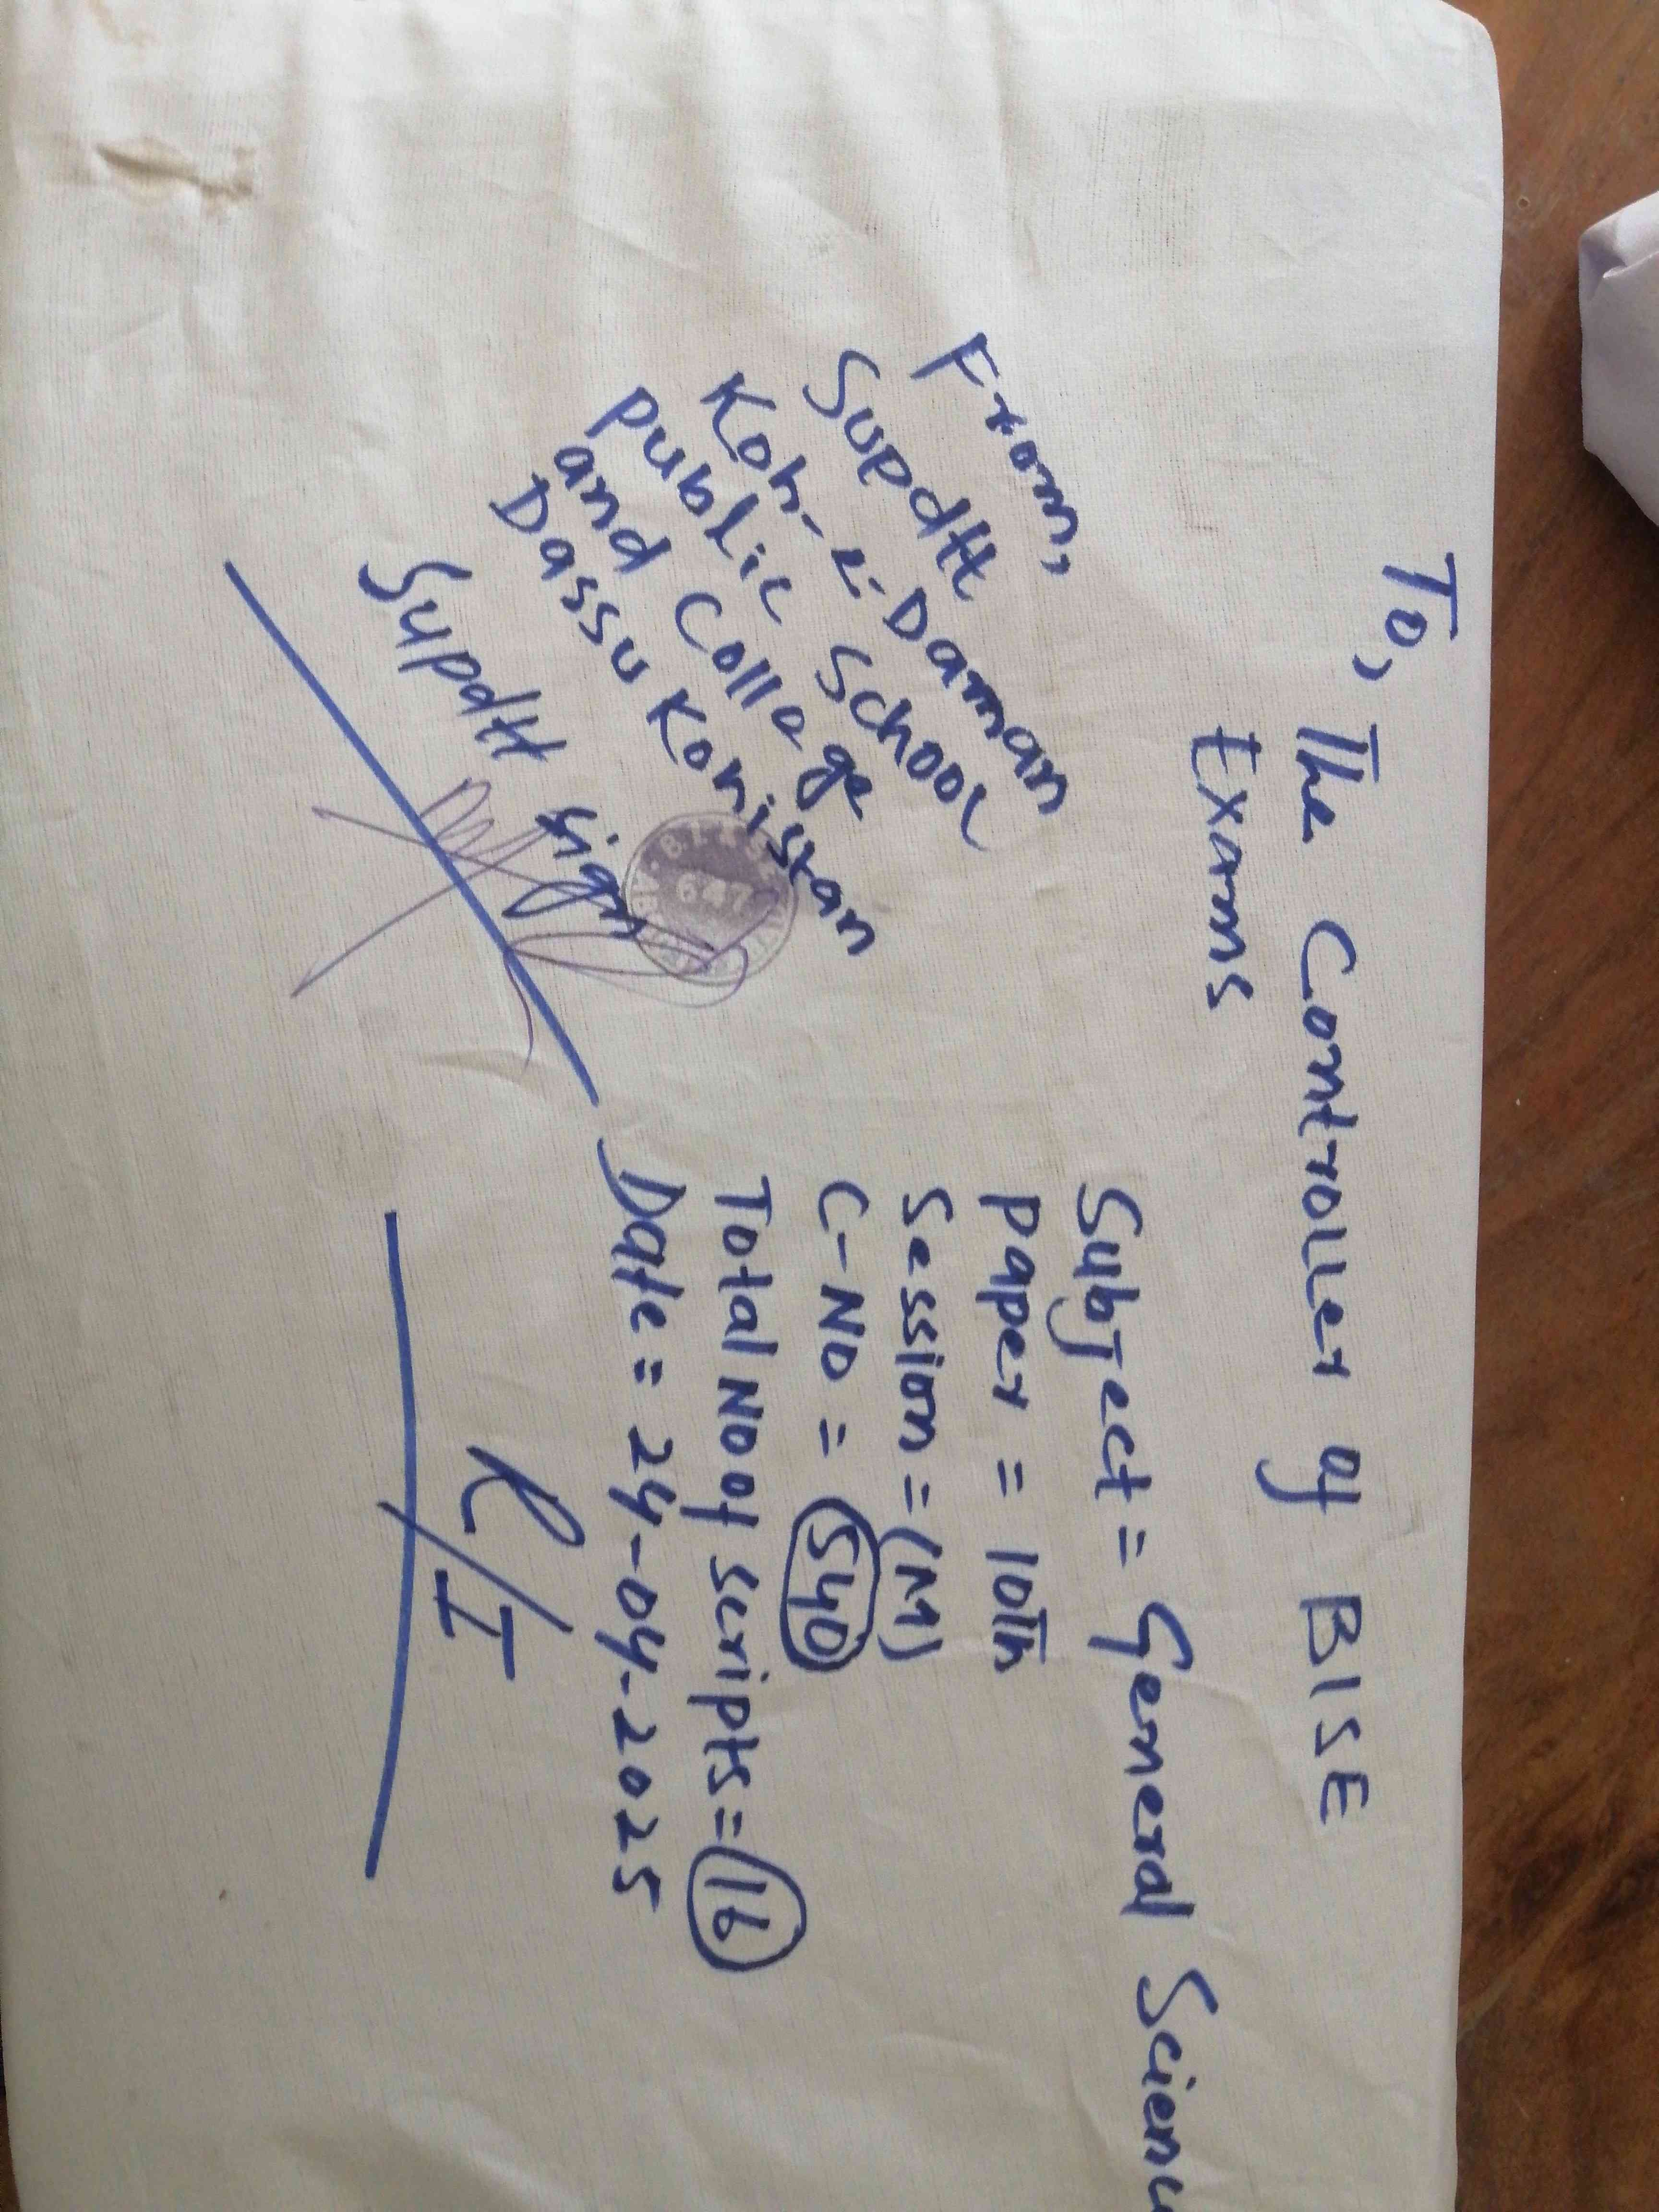 To, The Controller of BISE
Exams
Subject = General Scien
paper = 10th
Session = (M)
C-No = 540
Total No of scripts = 16
Date = 24-04-2025
R/I
From,
Supdtt
Koh-e-Daman
public School
and Collage
Dassu Kohistan
Supdtt sign
647